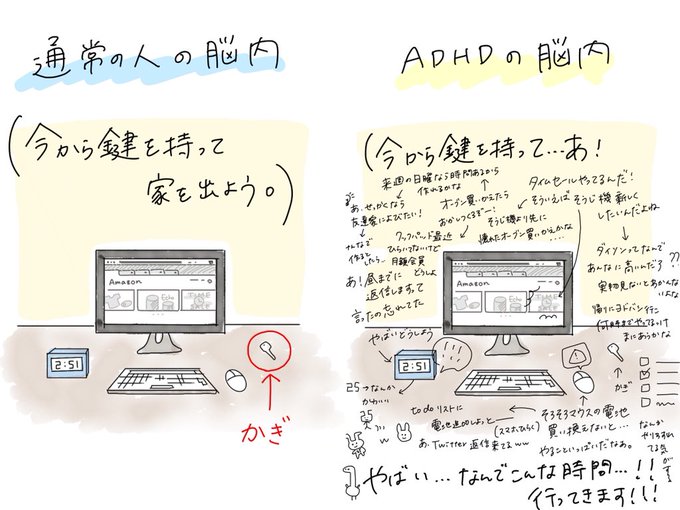 通常の人の脳内
(今から鍵を持って
家を出よう。)
Amazon
Echo
2:51
かぎ
ADHDの脳内
(今から鍵を持って…あ!
来週の日曜なら時間あるから
作れるかな
あ、せっかくなら
友達家によびたい!
みんなで
オーブン買いかえたら
おかしつくるぞー!
クックパッド最近
ひらいてないけど
月額会員
どうしよ
タイムセールやってるんだ!
そういえばそうじ機新しく
したいんだよね
そうじ機より先に
壊れたオーブン買いかえかな
....
ダイソンってなんで
あんなに高いんだろ
??
実物見ないとあかんな
帰りにヨドバシ行こ
あ!昼までに
返信しますって
言ったの忘れてた
やばいどうしよう
Amazon
2:51
25→なんか
かわいい
25
w
かぎ
todoリストに
電池追加しよっと
(スマホひらく)
あ、Twitter返信来てるww
そろそろマウスの電池
買い換えないと…
やることいっぱいだなあ。
なんか
やりわすれ
てる気
がする
やばい…なんでこんな時間…!!
行ってきます!!!